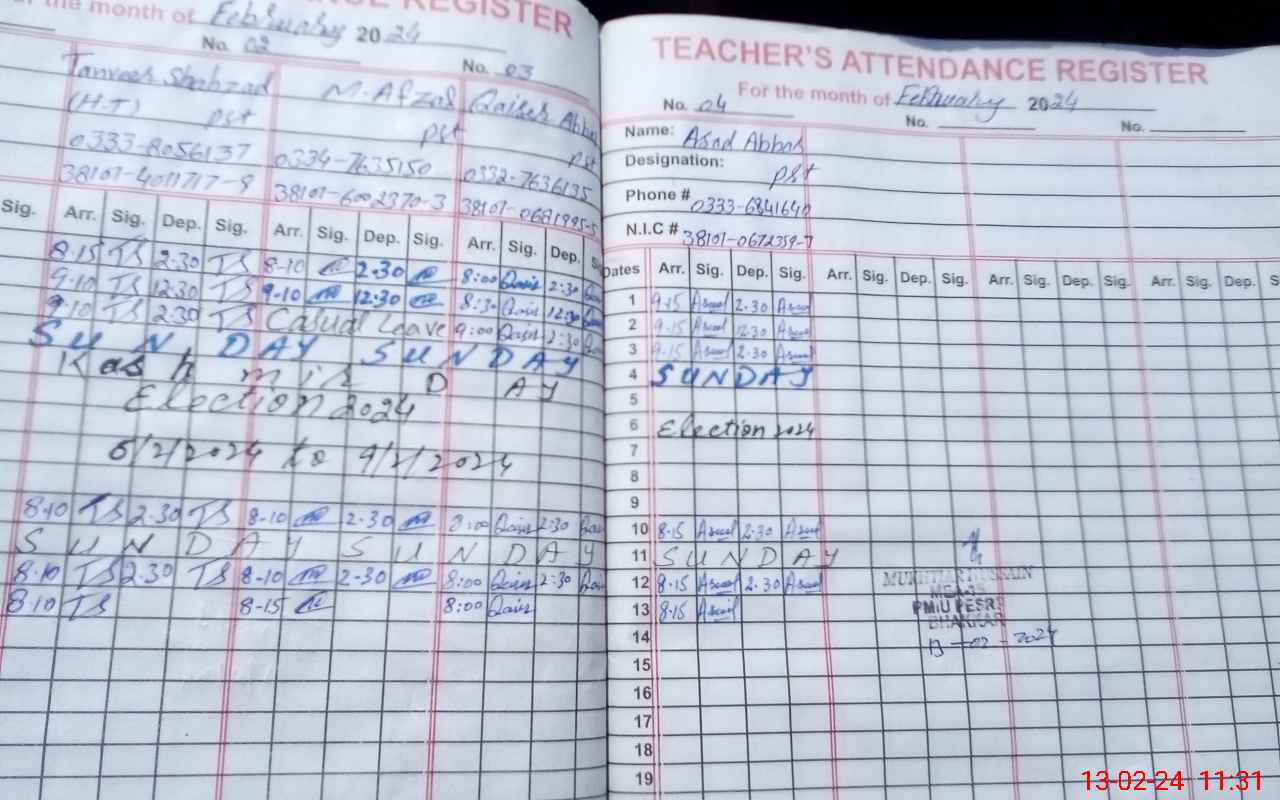 ANCE REGISTER
the month of February 2024
No. 02
No. 03
Tanveer Shahzad M. Afzal Qaiser Abbas
(H.T) pst pst pst
0333-8056137 0334-7635150 0332-7636135
38101-4011717-9 38101-6002370-3 38101-0681995-5
Sig. Arr. Sig. Dep. Sig. Arr. Sig. Dep. Sig. Arr. Sig. Dep.
8-15 TS 2-30 TS 8-10 2-30 8:00 Qais 2:30
9-10 TS 12:30 TS 9-10 12-30 8:30 Qais 12:30
9-10 TS 2:30 TS Casual Leave 9:00 Qais 2:30
SUNDAY SUNDAY
Kashmir DAY
Election 2024
6/2/2024 to 9/2/2024
8-10 TS 2-30 TS 8-10 2-30 8:00 Qais 2:30
SUNDAY SUNDAY
8-10 TS 2-30 TS 8-10 2-30 8:00 Qais 2:30
8-10 TS 8-15 8:00 Qais
TEACHER'S ATTENDANCE REGISTER
For the month of February 2024
No. 04 No. No.
Name: Asad Abbas
Designation: pst
Phone # 0333-6841640
N.I.C # 38101-0672359-7
Dates Arr. Sig. Dep. Sig. Arr. Sig. Dep. Sig. Arr. Sig. Dep. Sig. Arr. Sig. Dep.
1 9-15 Asad 2-30 Asad
2 9-15 Asad 12-30 Asad
3 9-15 Asad 2-30 Asad
4 SUNDAY
5
6 Election 2024
7
8
9
10 8-15 Asad 2-30 Asad
11 SUNDAY
12 8-15 Asad 2-30 Asad
13 8-15 Asad
14
15
16
17
18
19
MUKHTIAR HUSSAIN
PMIU PESRP
BHAKKAR
13-02-2024
13-02-24 11:31